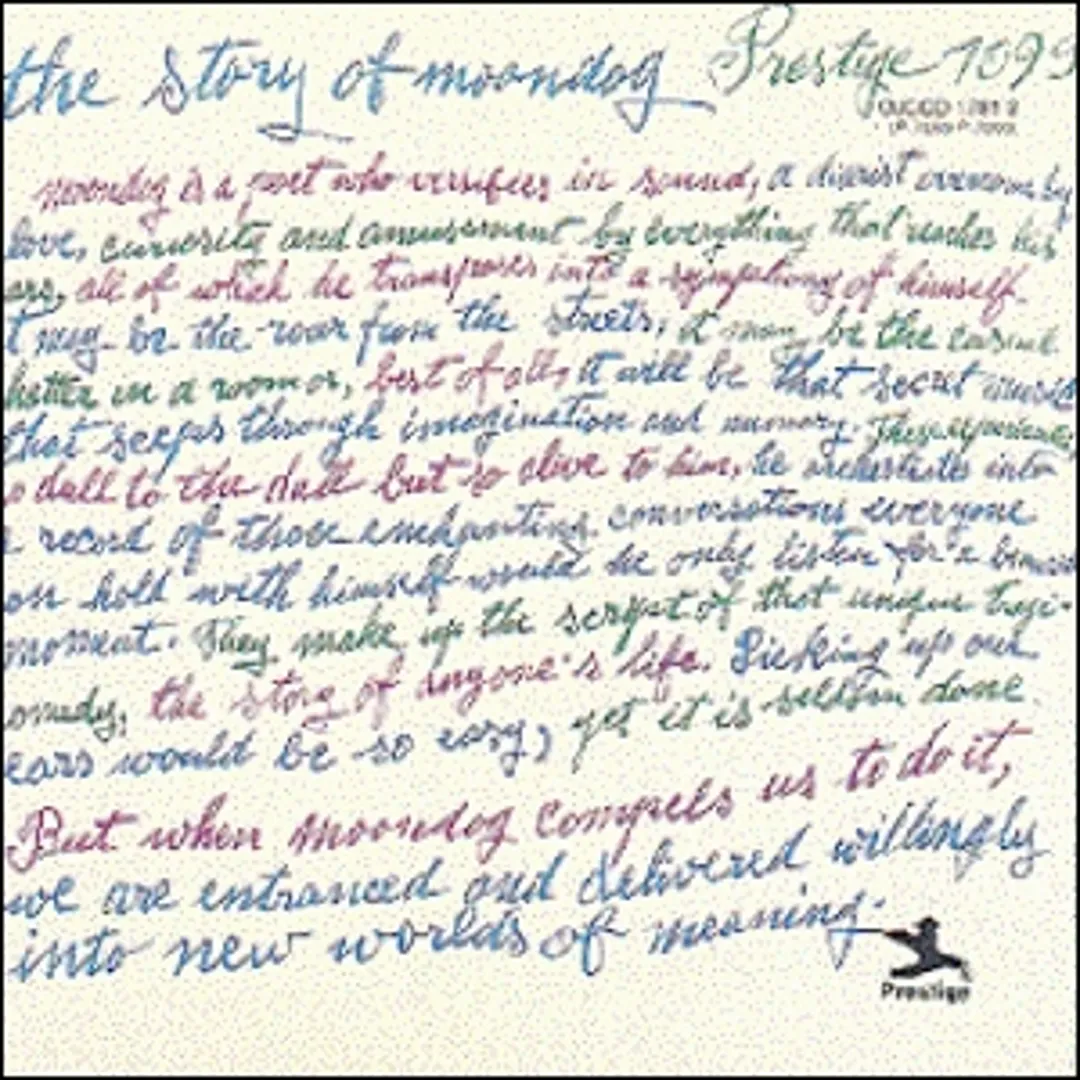 the story of moondog Prestige 1099
OJCCD 1781 2
moondog is a poet who versifies in sound, a diarist overcome by
love, curiosity and amusement by everything that reaches his
ars, all of which he transposes into a symphony of himself.
t may be the roar from the streets, it may be the casual
hatter in a room or, best of all, it will be that secret music
that seeps through imagination and memory. These experiences,
o dull to the dull but so alive to him, he orchestrates into
record of those enchanting conversations everyone
on hold with himself would he only listen for a
moment. They make up the script of that unique tragi-
omedy, the story of anyone's life. Picking up our
ears would be so easy, yet it is seldom done.
But when moondog compels us to do it,
we are entranced and delivered willingly
into new worlds of meaning.
Prestige